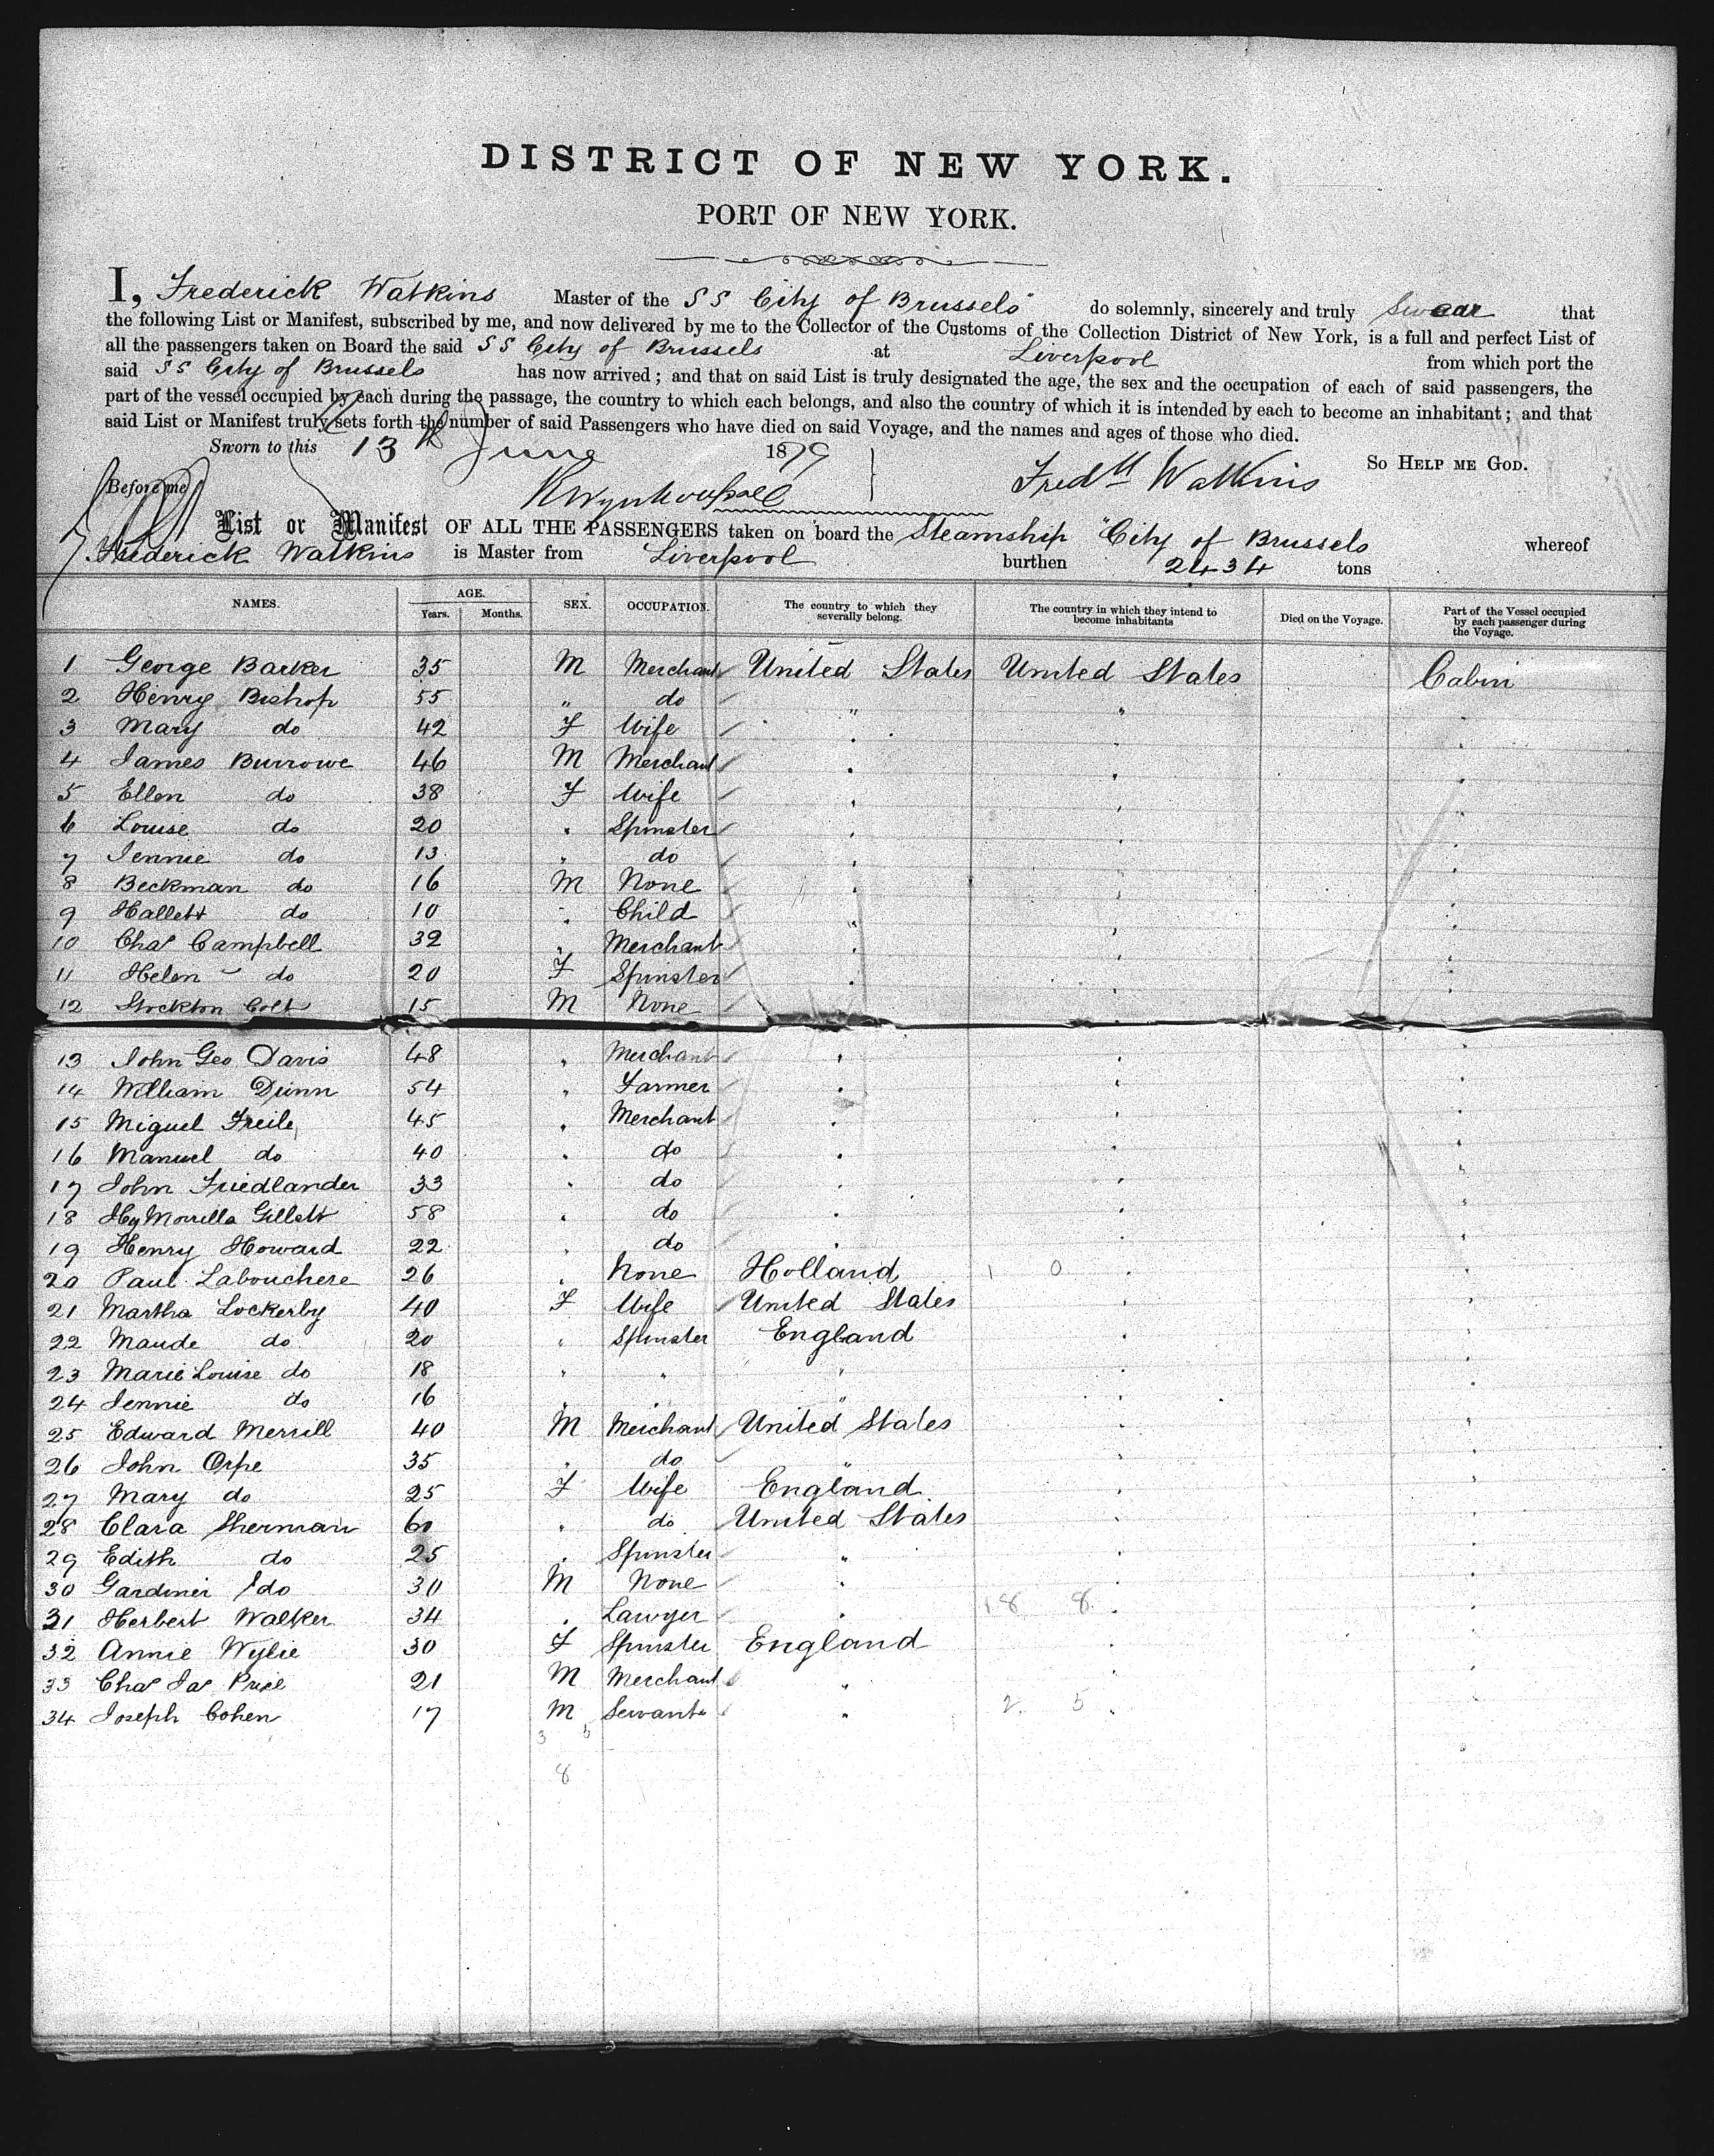 DISTRICT OF NEW YORK.
PORT OF NEW YORK.
I, Frederick Watkins Master of the SS City of Brussels do solemnly, sincerely and truly swear that
the following List or Manifest, subscribed by me, and now delivered by me to the Collector of the Customs of the Collection District of New York, is a full and perfect List of
all the passengers taken on Board the said SS City of Brussels at Liverpool from which port the
said SS City of Brussels has now arrived; and that on said List is truly designated the age, the sex and the occupation of each of said passengers, the
part of the vessel occupied by each during the passage, the country to which each belongs, and also the country of which it is intended by each to become an inhabitant; and that
said List or Manifest truly sets forth the number of said Passengers who have died on said Voyage, and the names and ages of those who died.
Sworn to this 13th June 1879 So HELP ME GOD.
Before me Fredk Watkins
List or Manifest OF ALL THE PASSENGERS taken on board the Steamship "City of Brussels whereof
Frederick Watkins is Master from Liverpool burthen 2434 tons
NAMES. AGE. Years. Months. SEX. OCCUPATION. The country to which they severally belong. The country in which they intend to become inhabitants Died on the Voyage. Part of the Vessel occupied by each passenger during the Voyage.
1 George Barker 35 M Merchant United States United States Cabin
2 Henry Bishop 55 " do " "
3 Mary do 42 F Wife " "
4 James Burrowe 46 M Merchant " "
5 Ellen do 38 F Wife " "
6 Louise do 20 " Spinster " "
7 Jennie do 13 " do " "
8 Beckman do 16 M None " "
9 Hallett do 10 " Child " "
10 Chas Campbell 32 " Merchant " "
11 Helen do 20 F Spinster " "
12 Stockton Colt 15 M None " "
13 John Geo Davis 48 " Merchant " "
14 William Dunn 54 " Farmer " "
15 Miguel Freile 45 " Merchant " "
16 Manuel do 40 " do " "
17 John Friedlander 33 " do " "
18 Hy Morrella Gillett 58 " do " "
19 Henry Howard 22 " do " "
20 Paul Labouchere 26 " None Holland 1 0 "
21 Martha Lockerby 40 F Wife United States "
22 Maude do 20 " Spinster England "
23 Marie Louise do 18 " " " "
24 Jennie do 16 " " " "
25 Edward Merrill 40 M Merchant United States "
26 John Orpe 35 " do " "
27 Mary do 25 F Wife England "
28 Clara Sherman 60 " do United States "
29 Edith do 25 " Spinster " "
30 Gardiner do 30 M None " "
31 Herbert Walker 34 " Lawyer " 18 8 "
32 Annie Wylie 30 F Spinster England "
33 Chas Jas Price 21 M Merchant " "
34 Joseph Cohen 17 M Servant " 2 5 "
3 5
8